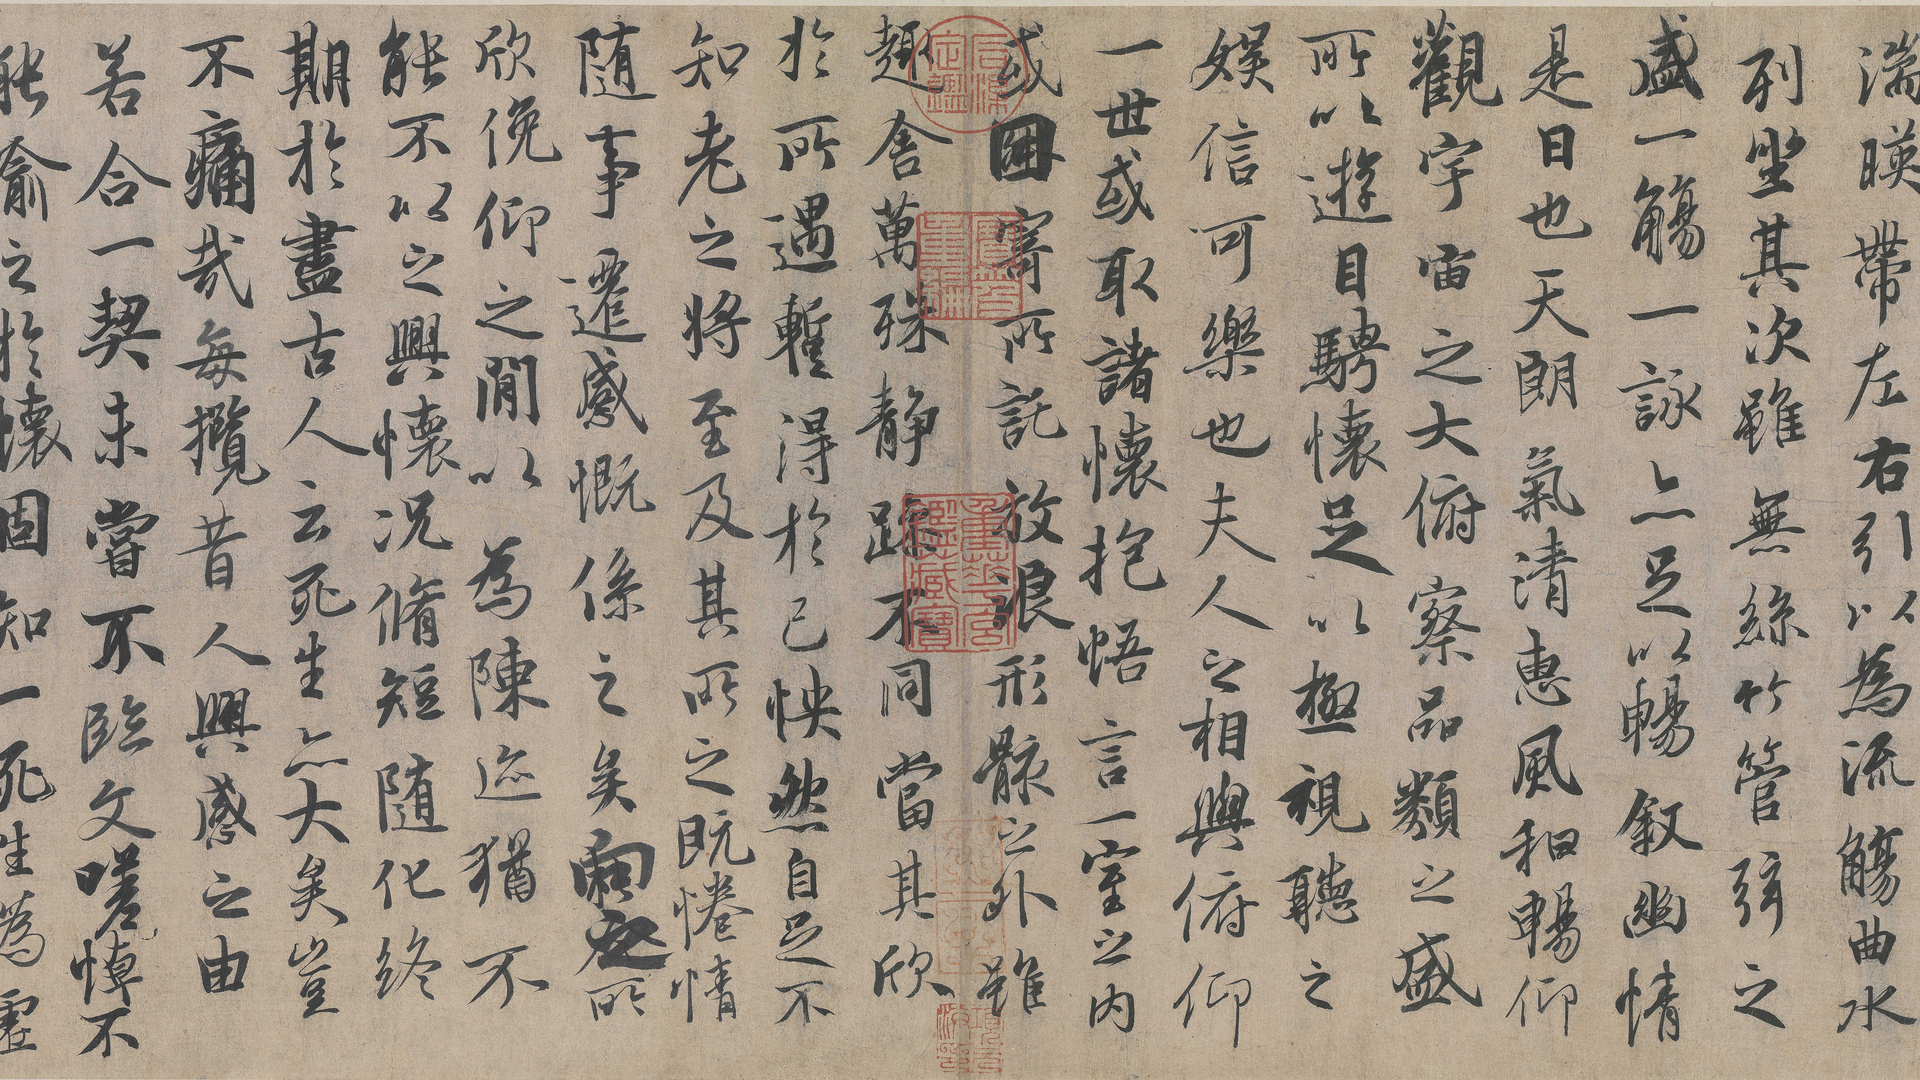 湍暎帶左右引以為流觴曲水
列坐其次雖無絲竹管弦之
盛一觴一詠亦足以暢敘幽情
是日也天朗氣清惠風和暢仰
觀宇宙之大俯察品類之盛
所以遊目騁懷足以極視聽之
娛信可樂也夫人之相與俯仰
一世或取諸懷抱悟言一室之內
或因寄所託放浪形骸之外雖
趣舍萬殊靜躁不同當其欣
於所遇暫得於己怏然自足不
知老之將至及其所之既惓情
隨事遷感慨係之矣向之所
欣俛仰之閒以為陳迹猶不
能不以之興懷況脩短隨化終
期於盡古人云死生亦大矣豈
不痛哉每攬昔人興感之由
若合一契未嘗不臨文嗟悼不
能喻之於懷固知一死生為虛
石渠定鑑
寶笈重編
重華宮鑑藏寶